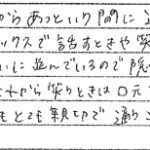 からあっという間に
ックスで話すときや笑
いに並んでいるので隠
れから笑うときは口元
もとても親切で通う